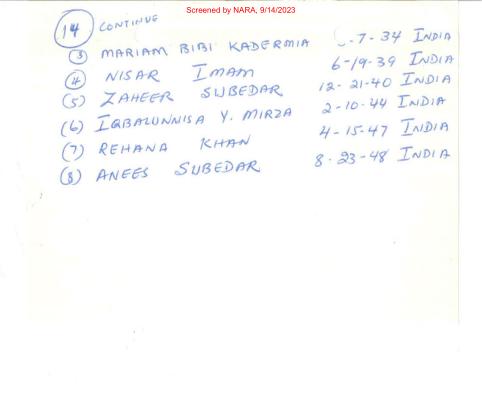 Screened by NARA, 9/14/2023
14 CONTINUE
(3) MARIAM BIBI KADERMIA -7-34 INDIA
(4) NISAR IMAM 6-19-39 INDIA
(5) ZAHEER SUBEDAR 12-21-40 INDIA
(6) IQBALUNNISA Y. MIRZA 2-10-44 INDIA
(7) REHANA KHAN 4-15-47 INDIA
(8) ANEES SUBEDAR 8-23-48 INDIA